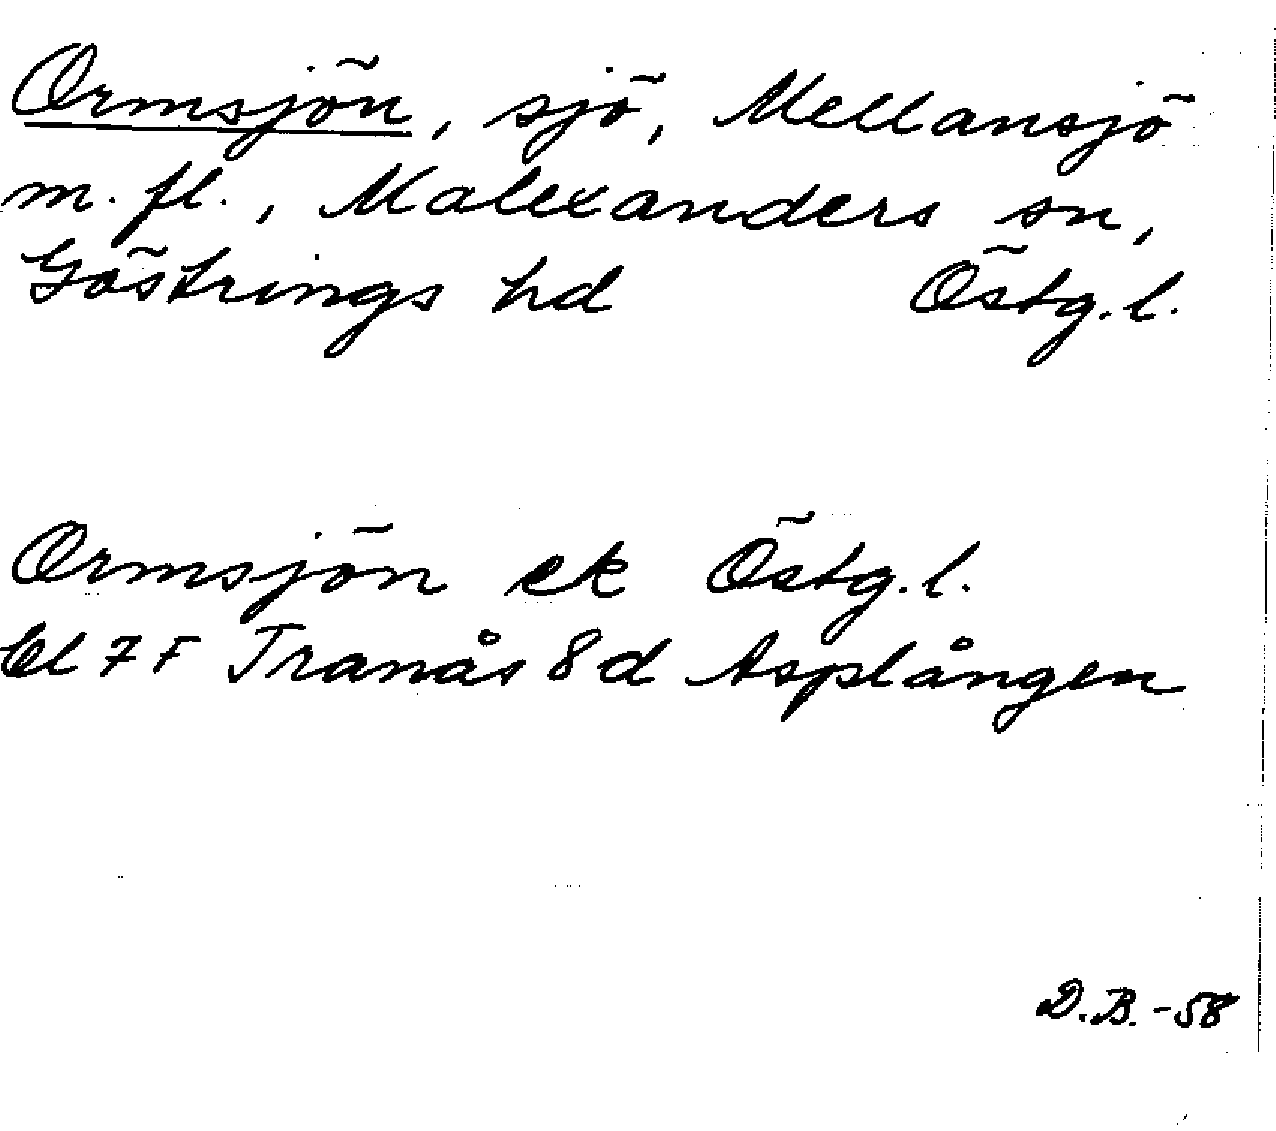 Ormsjön, sjö, Mellansjö
m. fl., Malexanders sn,
Göstrings hd Östg. l.
Ormsjön ek Östg. l.
bl 7 F Tranås 8 d Asplången
D. B. -58